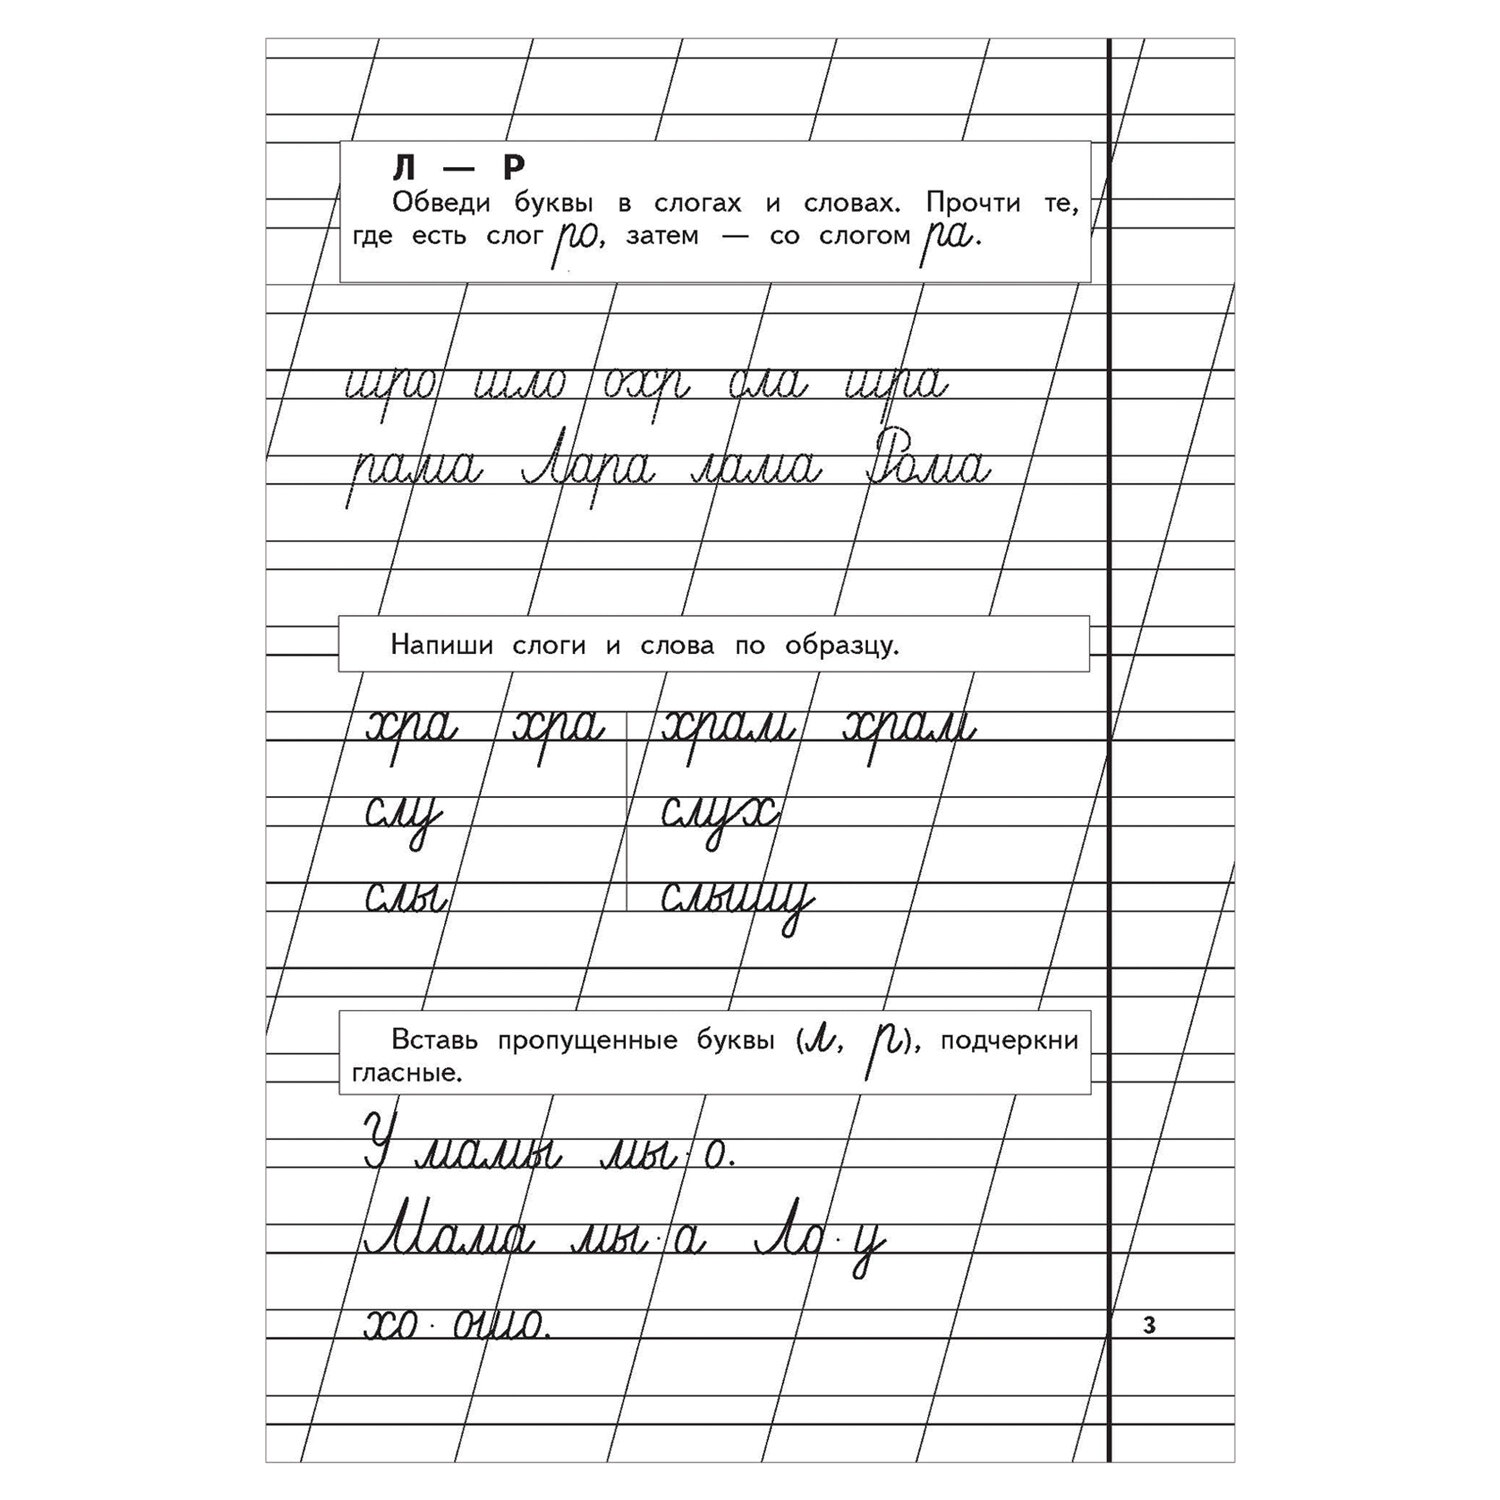 Л — Р
Обведи буквы в слогах и словах. Прочти те,
где есть слог ро, затем — со слогом ра.
шро шло охр ола шра
рама Лара лама Рома
Напиши слоги и слова по образцу.
хра хра храм храм
слу слух
слы слышу
Вставь пропущенные буквы (л, р), подчеркни
гласные.
У мамы мы·о.
Мама мы·а Ла·у
хо·ошо.
3